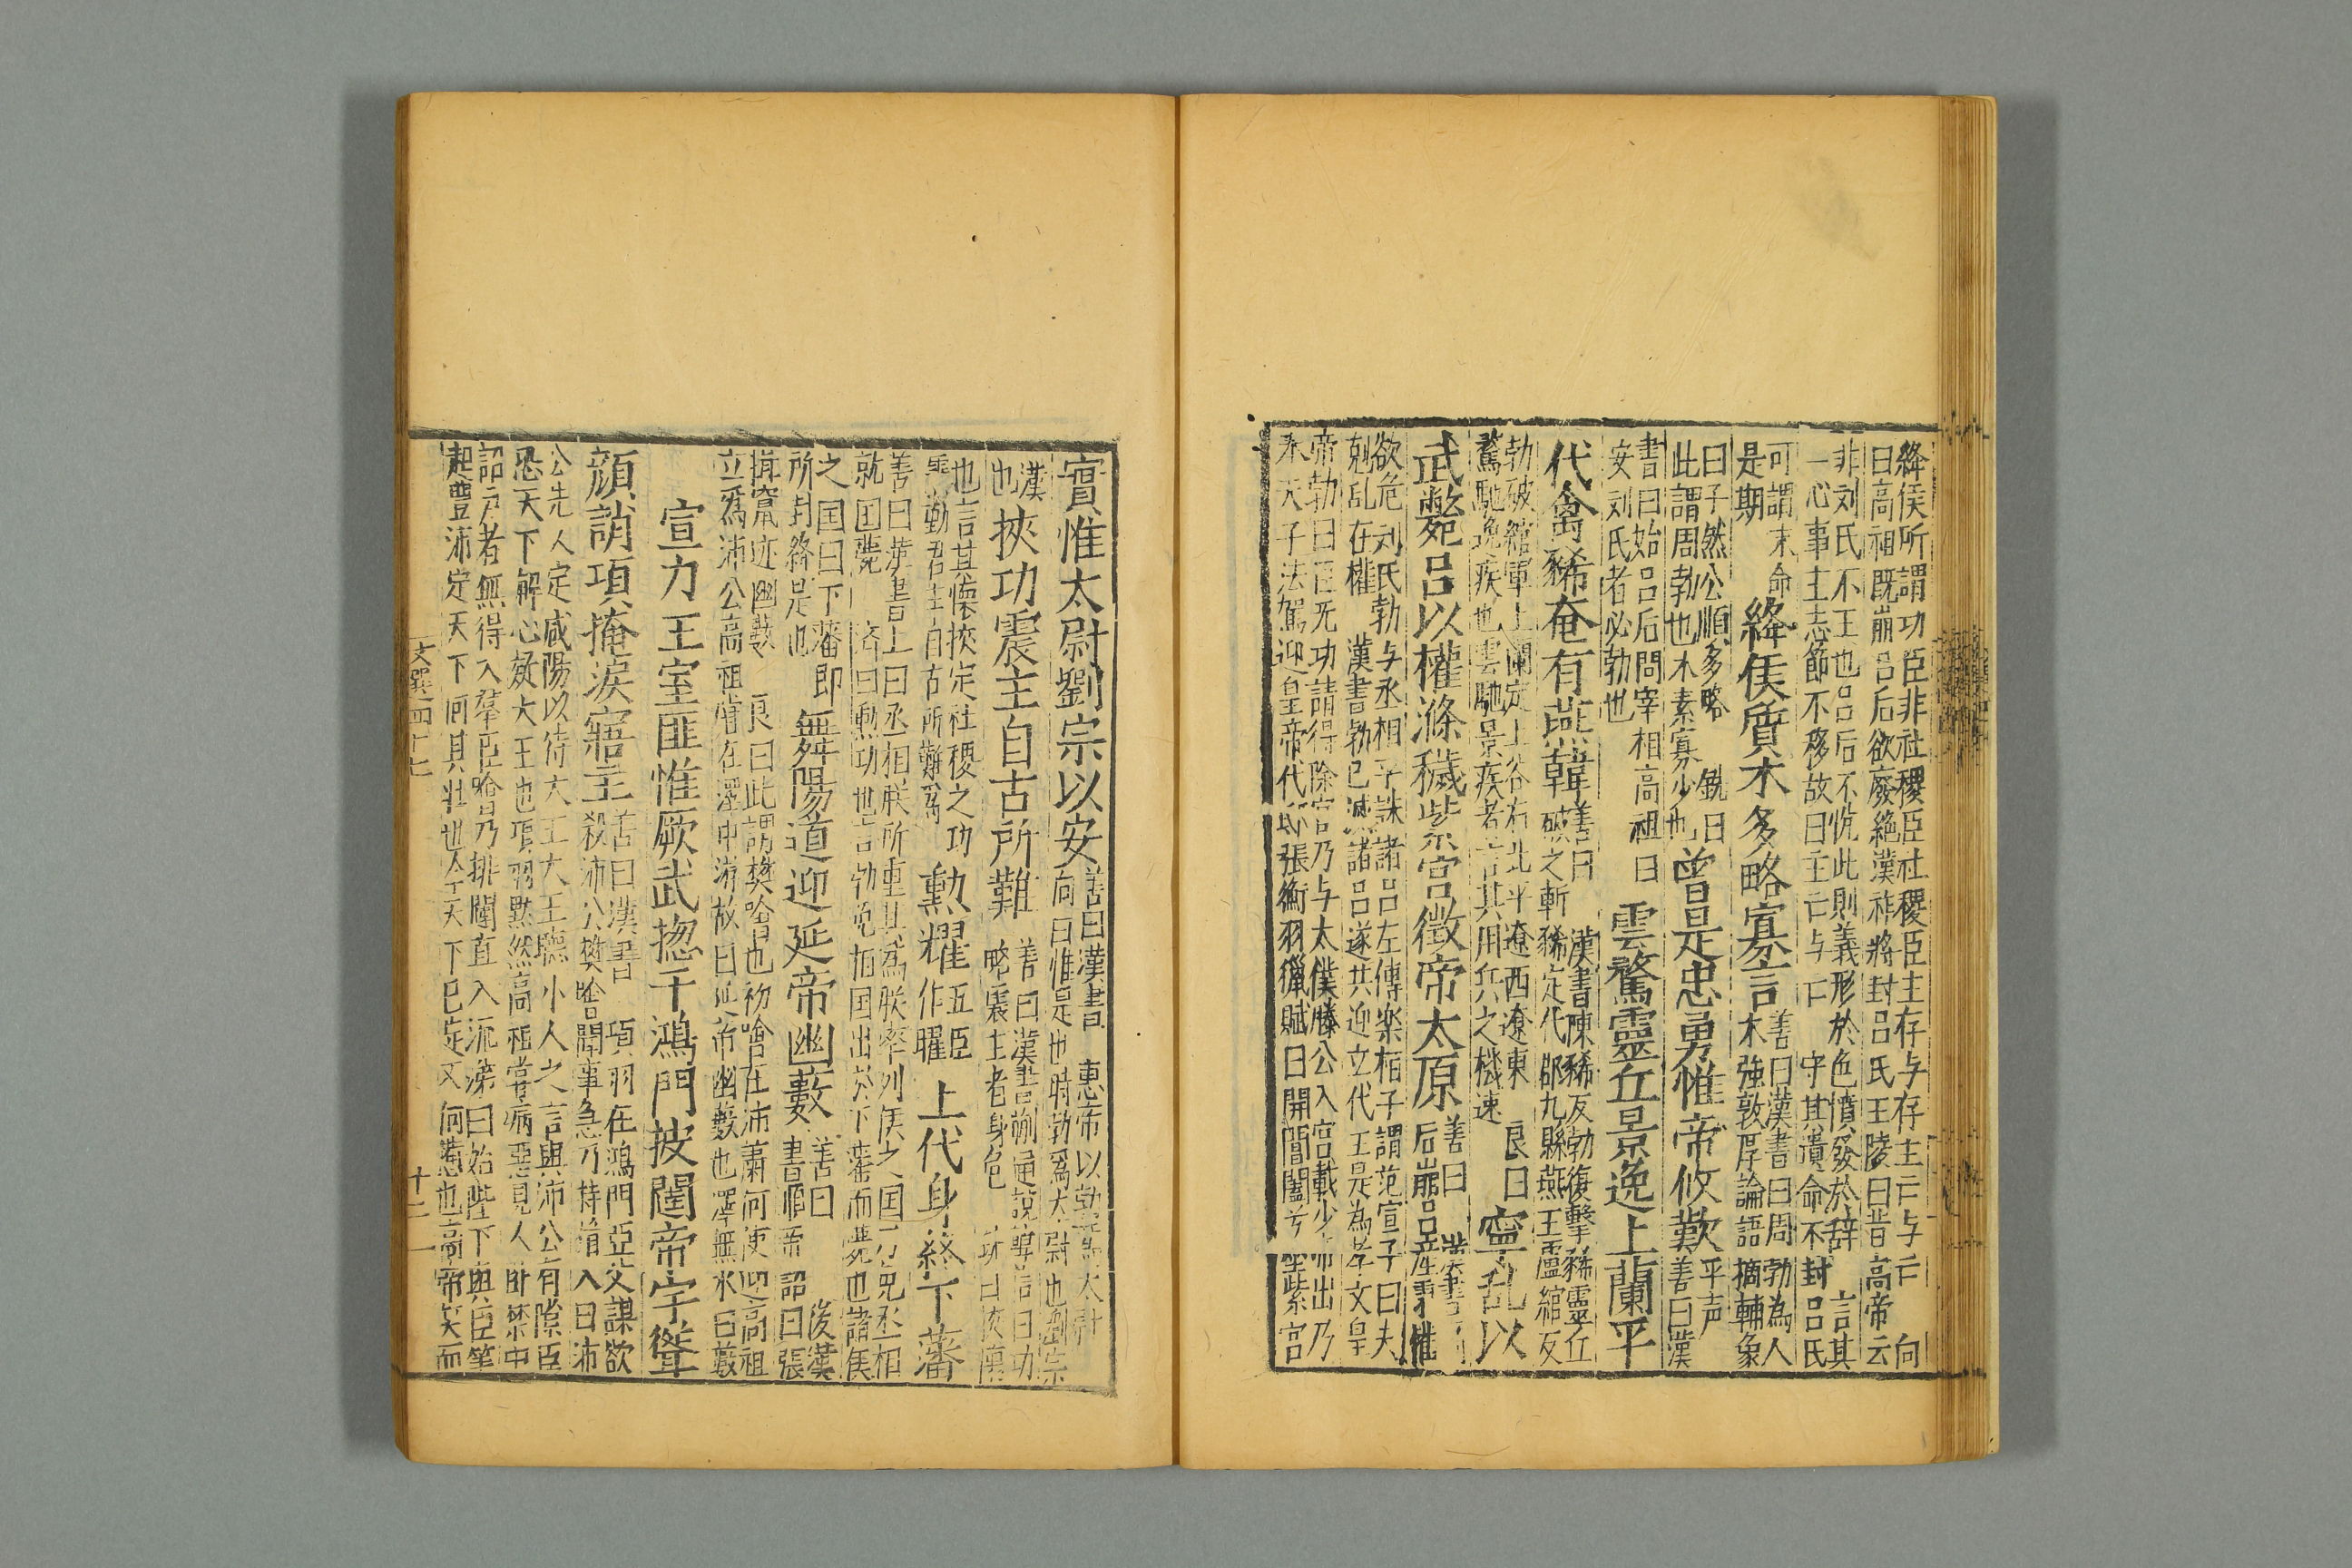 絳侯所謂功臣非社稷臣社稷臣主存与存主亡与亡　向
曰高祖既崩呂后欲廢絶漢祚將封呂氏王陵曰昔高帝云
非刘氏不王也呂后不悦此則義形於色憤發於辞　言其
一心事主志節不移故曰主亡与亡　守其遺命不封呂氏
可謂末命
是期
絳侯質木多略寡言
善曰漢書曰周勃為人
木強敦厚論語摘輔象
曰子然公順多略　銑曰
此謂周勃也木素寡少也
曾是忠勇惟帝攸歎
平声
善曰漢
書曰始呂后問宰相高祖曰
安刘氏者必勃也
雲騖靈丘景逸上蘭平
代禽豨奄有燕韓
善曰　漢書陳豨反勃復擊豨靈丘
破之斬豨定代郡九縣燕王盧綰反
勃破綰軍上蘭定上谷右北平遼西遼東　良曰
騖馳逸疾也雲馳景疾者言其用兵之機速
寧乱以
武斃呂以權滌穢紫宮徵帝太原
善曰　漢書
后崩呂産惟
欲危刘氏勃与丞相平誅諸呂左傳楽栢子謂范宣子曰夫
剋乱在權　漢書勃已滅諸呂遂共迎立代王是為孝文皇
帝勃曰臣无功請得除宮乃与太僕滕公入宮載少帝出乃
奉天子法駕迎皇帝代邸張衡羽獵賦曰開閶闔兮坐紫宮
實惟太尉劉宗以安
善曰漢書　惠帝以勃為太尉
向曰惟是也時勃爲太尉也劉宗
漢
也
挾功震主自古所難
善曰漢書蒯通説韓信曰功
略震主者身危
也言其懷挾定社稷之功
震動君主自古所難爲
勳耀
五臣
作曜
上代身終下藩
善曰漢書上曰丞相朕所重其爲朕率列侯之国乃免丞相
就国薨　済曰勳功世言勃免相国出於下藩而薨也諸侯
之国曰下藩即
所封絳是也
舞陽道迎延帝幽藪
善曰　後漢
書順帝詔曰張
揖竄迹幽藪　良曰此謂樊噲也初噲在沛蕭何使迎高祖
立爲沛公高祖嘗在澤中游故曰延帝幽藪也澤無水曰藪
宣力王室匪惟厥武揔干鴻門披闥帝宇聳
顔誚項掩淚寤主
善曰漢書　項羽在鴻門亞父謀欲
殺沛公樊噲聞事急乃持楯入曰沛
公先入定咸陽以待大王大王聽小人之言與沛公有隙臣
恐天下解心疑大王也項羽默然高祖嘗病惡見人卧禁中
詔户者無得入羣臣噲乃排闥直入流涕曰始陛下與臣等
起豐沛定天下何其壯也今天下已定又何憊也高帝笑而
文選四十七　十二